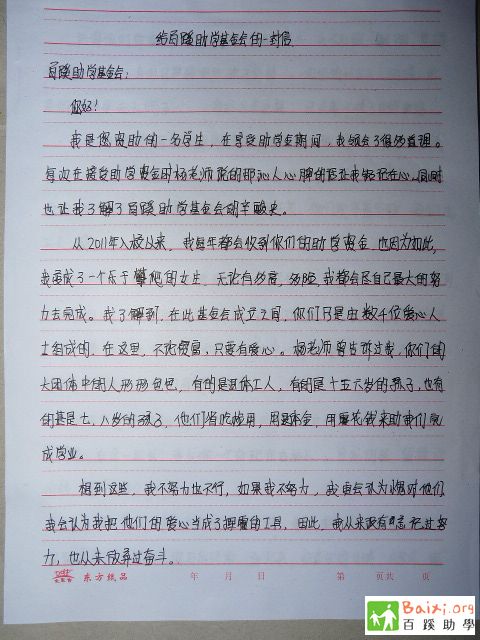 给百蹊助学基金会的一封信
百蹊助学基金会：
您好！
我是您资助的一名学生，在享受助学金期间，我领会了很多道理。
每次在接受助学资金时杨老师说的那沁人心脾的话让我铭记在心，同时
也让我了解了百蹊助学基金会的辛酸史。
从2011年入校以来，我每年都会收到你们的助学资金 也因为如此，
我变成了一个乐于攀爬的女生，无论有多高，多险，我都会尽自己最大的努
力去完成。我了解到，在此基金会成立之间，你们只是由数千位爱心人
士组成的，在这里，不论贫富，只要有爱心。杨老师曾告诉过我，你们的
大团体中的人形形色色，有的是退休工人，有的是十五六岁的孩子，也有
的甚是七、八岁的孩子，他们省吃俭用，用零花钱来助我们完
成学业。
想到这些，我不努力也不行，如果我不努力，我更会认为愧对他们
我会认为我把他们的爱心当成了挥霍的工具，因此，我从来没有忘记过努
力，也从来没放弃过奋斗。
东方纸品 年 月 日 第 页共 页
Baixi.org
百蹊助學